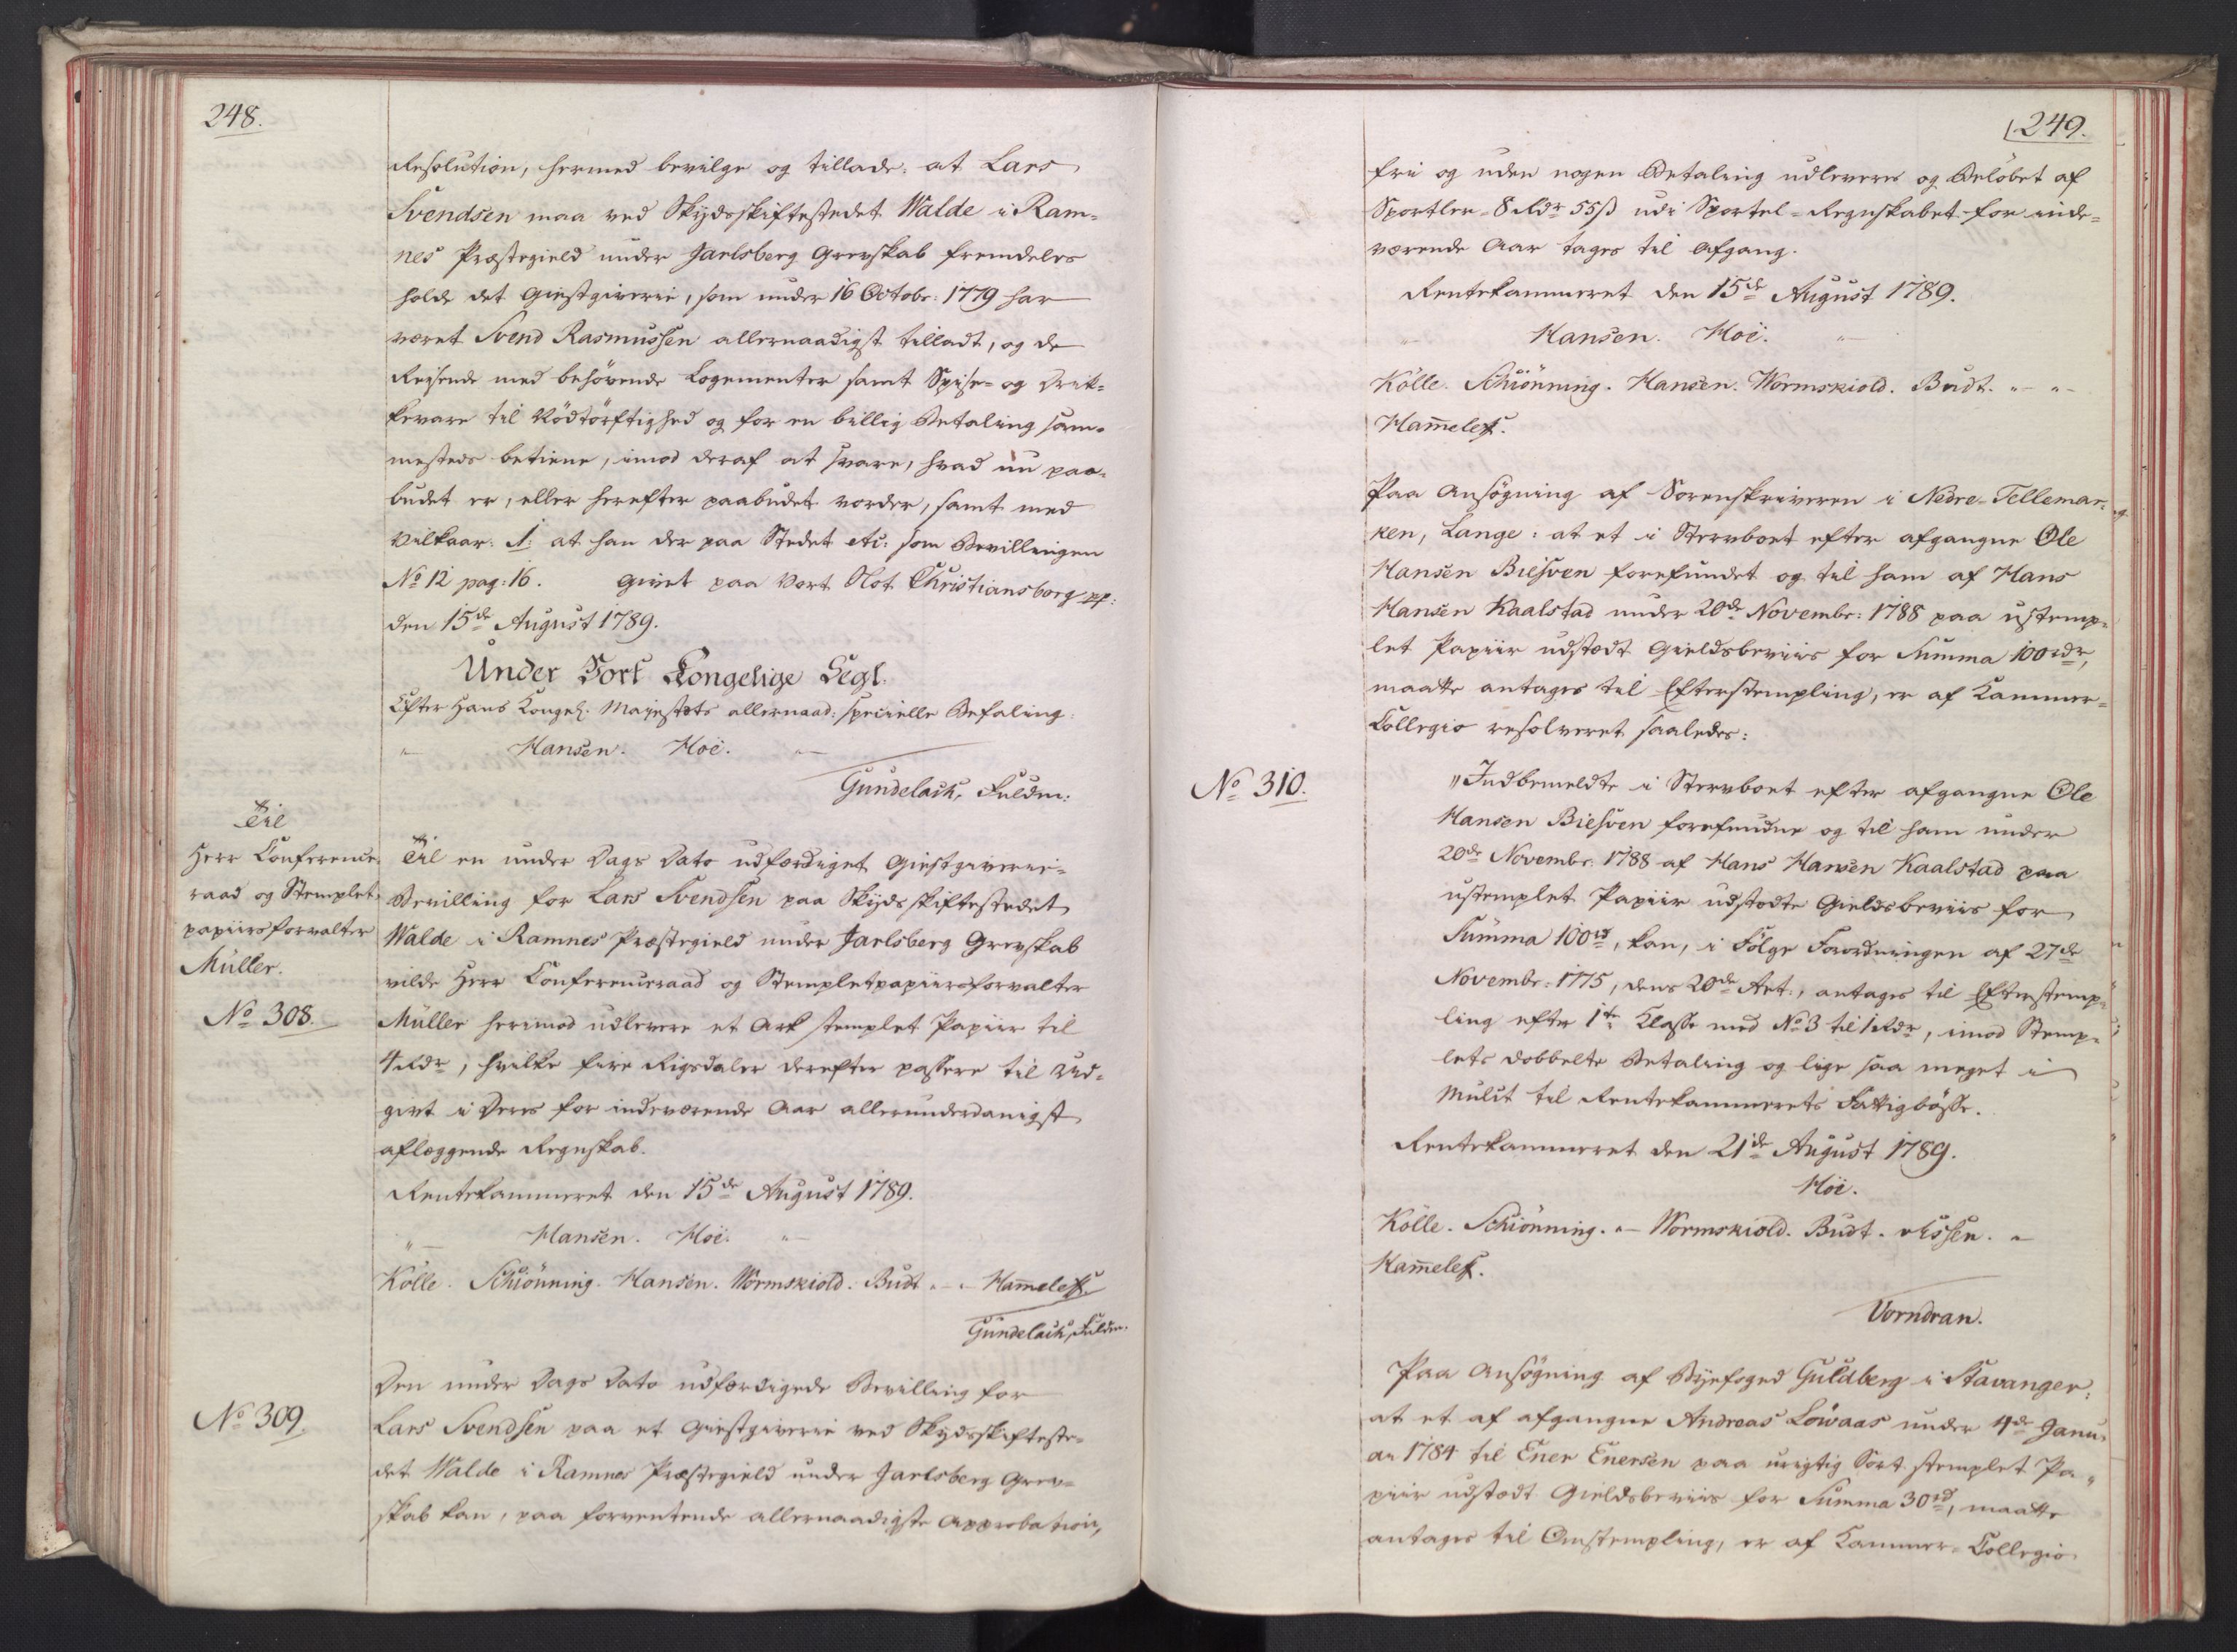 248.
Resolution, hermed bevilge og tillade: at Lars
Svendsen maa ved Skydsskiftestedet Walde i Ram-
nes Præstegield under Jarlsberg Grevskab fremdeles
holde det Giestgiverie, som under 16 Octobr: 1779 har
været Svend Rasmussen allernaadigst tilladt, og de
Reisende med behövende Logementer samt Spise- og Drik-
kevare til Nödtörftighed og for en billig Betaling sam-
mesteds betiene, imod deraf at svare, hvad nu paa-
budet er, eller herefter paabudet vorder, samt med
Vilkaar: 1: at han der paa Stedet etc: som Bevillingen
No 12 pag: 16. Givet paa Vort Slot Christiansborg pp:
den 15de August 1789.
Under Vort Kongelige Segl.
Efter Hans Kongel: Majestæts allernaad: specielle Befaling:
"— Hansen. Hoë. "—
Gundelach, Fuldm:
Til
Herr Conference-
raad og Stemplet-
papiirsforvalter
Müller.
No 308.
Til en under Dags Dato udfærdiget Giestgiverie-
Bevilling for Lars Svendsen paa Skydsskiftestedet
Walde i Ramnes Præstegield under Jarlsberg Grevskab
vilde Herr Conferenceraad og Stempletpapiirsforvalter
Müller herimod udlevere et Ark stemplet Papiir til
4 Rdr, hvilke fire Rigsdaler derefter passere til Ud-
givt i Deres for indeværende Aar allerunderdanigst
aflæggende Regnskab.
Rentekammeret den 15de August 1789.
"— Hansen. Hoë. "—
Kölle. Schiönning. Hansen. Wormskiold. Budt. "— "— Hammeleff.
Gundelach, Fuldm.
No 309.
Den under Dags Dato udfærdigede Bevilling for
Lars Svendsen paa et Giestgiverie ved Skydsskifteste-
det Walde i Ramnes Præstegield under Jarlsberg Grev-
skab kan, paa forventende allernaadigste Approbation,
249.
frie og uden nogen Betaling udleveres og Belöbet af
Sportler - 8 Rdr 55 ß udi Sportel-Regnskabet for inde-
værende Aar tages til Afgang.
Rentekammeret den 15de August 1789.
"— Hansen. Hoë. "—
Kölle. Schiönning. Hansen. Wormskiold. Budt. "— "—
Ham̅eleff.
Paa Ansögning af Sorenskriveren i Nedre-Tellemar-
ken, Lange: at et i Stervboet efter afgangne Ole
Hansen Biesven forefundet og til ham af Hans
Hansen Kaalstad under 20de Novembr: 1788 paa ustemp-
let Papiir udstædt Gieldsbeviis for Summa 100 rdr,
maatte antages til Efterstempling, er af Kammer-
Collegio resolveret saaledes:
No 310.
"Indbemeldte i Stervboet efter afgangne Ole
Hansen Biesven forefundne og til ham under
20de Novembr: 1788 af Hans Hansen Kaalstad paa
ustemplet Papiir udstædte Gieldsbeviis for
Summa 100 rd, kan, i Fölge Forordningen af 27de
Novembr: 1775, dens 20de Art:, antages til Efterstemp-
ling efter 1te Klasse med No 3 til 1 Rdr, imod Stemp-
lets dobbelte Betaling og lige saa meget i
Mulct til Rentekammerets Fattigbösse.
Rentekammeret den 21de August 1789.
Hoë.
Kölle. Schiönning. "— Wormskiold. Budt. vEssen. "
Ham̅eleff.
Vorndran.
Paa Ansögning af Byefoged Guldberg i Stavanger:
at et af afgangne Andreas Lowaas under 4de Janu-
ar 1784 til Ener Enersen paa urigtig Sort stemplet Pa-
piir udstædt Gieldsbeviis for Summa 30 rd, maatte
antages til Omstempling, er af Kammer-Collegio